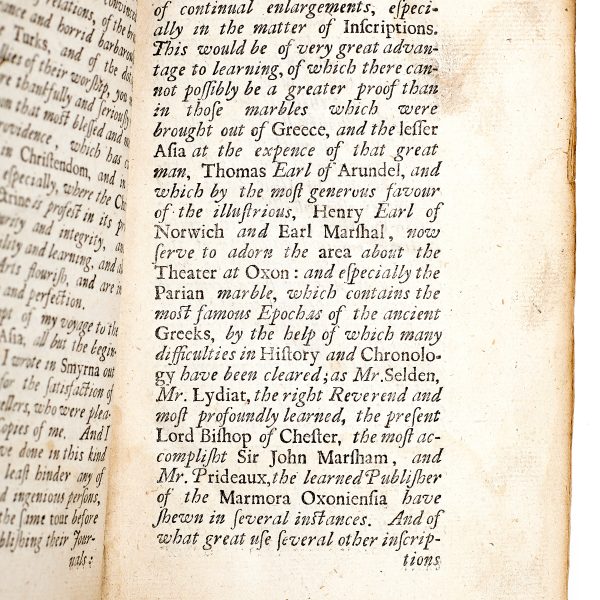 convinced
relations, of the bar
ance and horrid barbarou
Turks, and of the
llies of their worſhip, you
re thankfully and ſeriouſly
om that moſt bleſſed and
rovidence which has
n Chriſtendom, and in
eſpecially, where the
trine is profeſt in its
urity and integrity,
ality and learning, and
Arts flouriſh, and are in
and perfection.
ept of my voyage to the
Aſia, all but the begin-
I wrote in Smyrna out
for the ſatisfaction of
ellers, who were plea-
opies of me. And I
ve done in this kind
leaſt hinder any of
d ingenious perſons,
the ſame tour before
bliſhing their Jour-
nals:
of continual enlargements, eſpeci-
ally in the matter of Inſcriptions.
This would be of very great advan-
tage to learning, of which there can-
not poſſibly be a greater proof than
in thoſe marbles which were
brought out of Greece, and the leſſer
Aſia at the expence of that great
man, Thomas Earl of Arundel, and
which by the moſt generous favour
of the illuſtrious, Henry Earl of
Norwich and Earl Marſhal, now
ſerve to adorn the area about the
Theater at Oxon: and eſpecially the
Parian marble, which contains the
moſt famous Epochas of the ancient
Greeks, by the help of which many
difficulties in Hiſtory and Chronolo-
gy have been cleared; as Mr. Selden,
Mr. Lydiat, the right Reverend and
moſt profoundly learned, the preſent
Lord Biſhop of Cheſter, the moſt ac-
compliſht Sir John Marſham, and
Mr. Prideaux, the learned Publiſher
of the Marmora Oxonienſia have
ſhewn in ſeveral inſtances. And of
what great uſe ſeveral other inſcrip-
tions